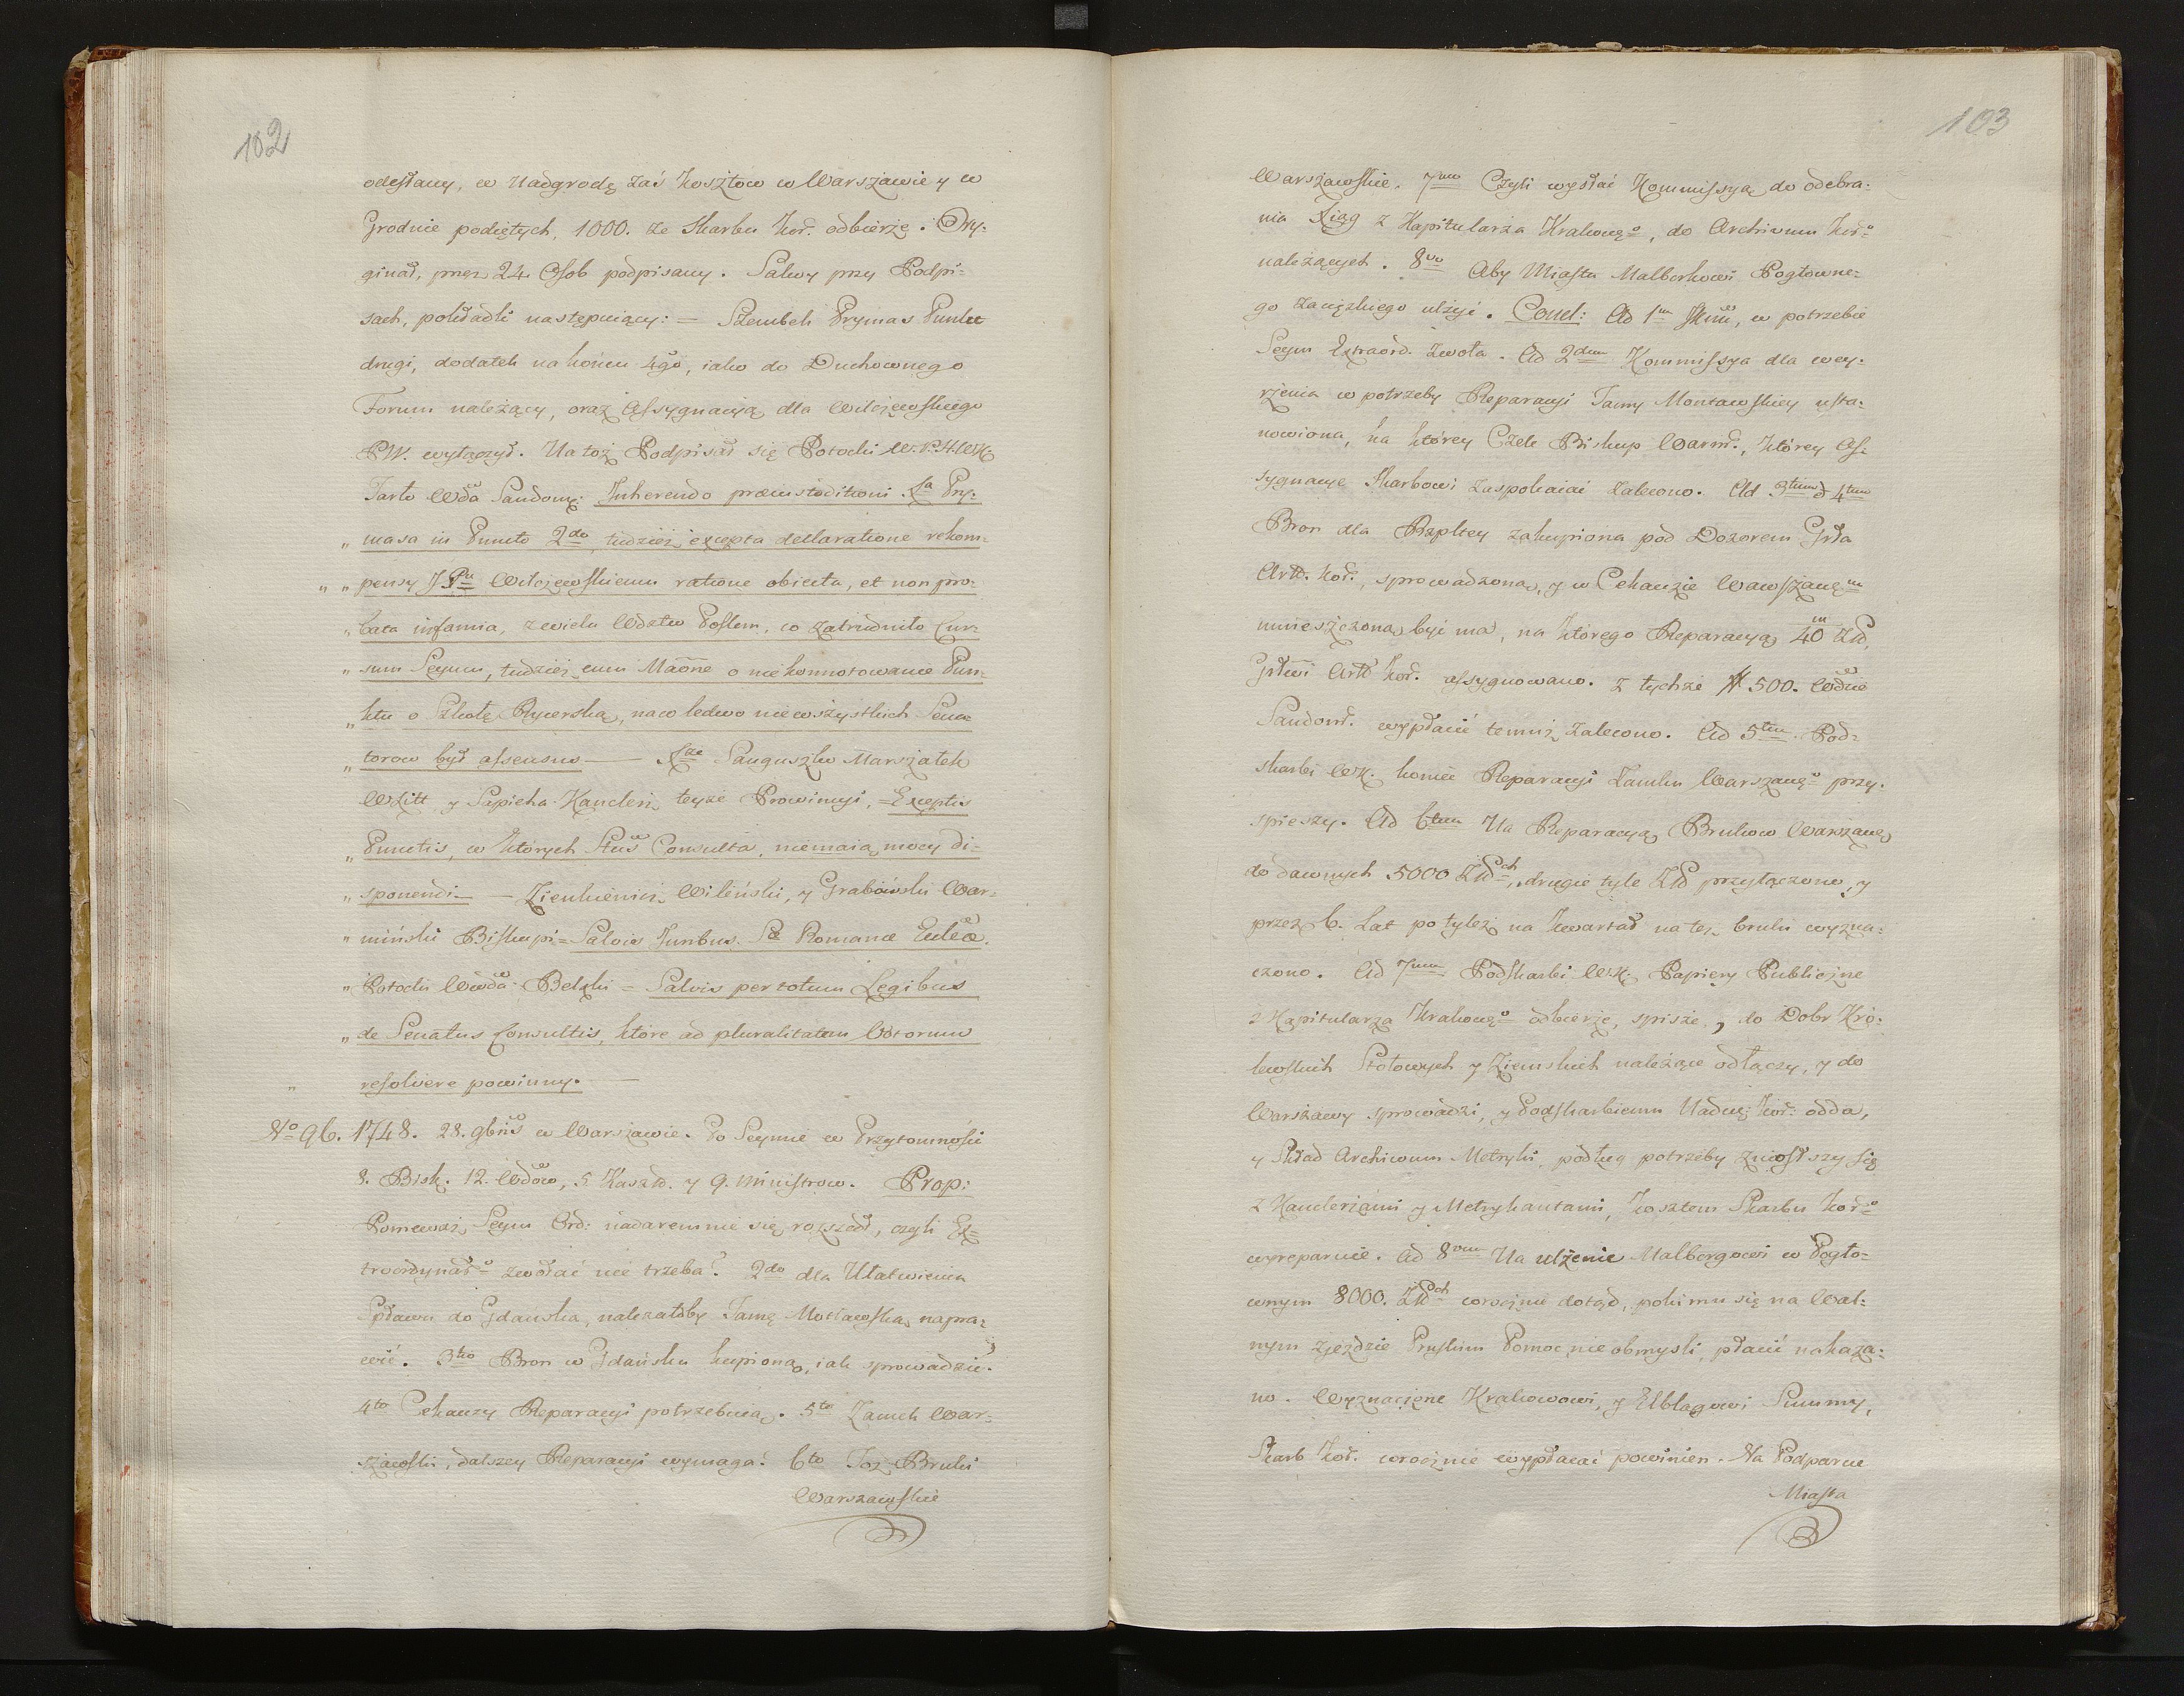 102
odesłany, w Nadgrodę zaś kosztow w Warszawie y w
Grodnie podiętych, 1000. ze Skarbu Kor. odbierze. Ory-
ginał, przez 24. Osob podpisany. Salwy przy Podpi-
sach, pokładli następuiący: = Szembek Prymas Punkt
drugi, dodatek na końcu 4go, iako do Duchownego
Forum należący, oraz Assygnacyą dla Wilczewskiego
PW. wyłączył. Na toż Podpisał się Potocki
Tarło Wda Sandom: Inherendo Xa Pry-
„ masa in Puncto 2do, tudzież excepta declaratione rekom-
„ „ pensy J Pu Wilczewskiemu ratione obiecta, et non pro-
„ bata infamia, z wielu Wdztw Posłem, co zatrudniło Cur-
„ sum Seymu, tudzież cum Maone o nie konnotowanie Pun-
„ ktu o Szkołę Rycerską, na co ledwo nie wszystkich Sena-
„ torow był assensus — Xże Sanguszko Marszałek
WXLitt y Sapieha Kanclerz teyże Prowincyi, = Exceptis
„ Punctis, w których Stus Consulta, niemaią mocy di-
„ sponendi — Zienkiewicz Wileński, y Grabowski War-
„ miński Biskupi = Salvis Juribus. Sæ Romanæ Eccleæ.
„ Potocki Wwda Belzki = Salvis per totum Legibus
„ de Senatus Consultis, ktore ad pluralitatem Votorum
„ resolvere powinny. —
No 96. 1748. 28. 9bris w Warszawie. Po Seymie w Przytomności
8. Bisk. 12. Wdow, 5. Kaszt. y 9. Ministrow. Prop:
Ponieważ Seym Ord: nadaremnie się rozszedł, czyli Ex-
traordynar° zwołać nie trzeba? 2do dla Ułatwienia
Spławu do Gdańska, należałoby Tamę Motławską napra-
wić. 3tio Bron w Gdańsku kupioną, iak sprowadzić?
4to Cekauzy Reparacyi potrzebuią. 5to Zamek War-
szawski, dalszey Reparacyi wymaga. 6to Toż Bruki
Warszawskie
103
Warszawskie. 7mo Czyli wysłać Kommissyą do odebra-
nia Xiąg z Kapitularza Krakowgo, do Archivum Kor°
należących. 8vo Aby Miastu Malborkowi Pogłowne-
go zaciężkiego ulżyć. Concl: Ad 1m w potrzebie
Seym Extraord. zwoła. Ad 2dum Kommissya dla wey-
rzenia w potrzeby Reparacyi Tamy Montawskiey usta-
nowiona, na którey Czele Biskup Warm., którey As-
sygnacye Skarbowi zaspokaiać zalecono. Ad 3tium & 4tum
Bron dla Rzpltey zakupiona pod Dozorem Grła
Artt. Kor., sprowadzona, y w Cekauzie Warszawm
umieszczona być ma, na którego Reparacyą 40m Złt,
Grłwi Artt Kor. assygnowano. Z tychże # 500. Wdzie
Sandom. wypłacić temuż zalecono. Ad 5tum. Pod-
skarbi WK. koniec Reparacyi Zamku Warszawgo przy-
spieszy. Ad 6tum Na Reparacyą Brukow Warszawch
do dawnych 5000 Złtch, drugie tyle Złt przyłączono, y
przez 6. Lat po tyleż na Kwartał na też bruki wyzna-
czono. Ad 7mum Podskarbi W.K. Papiery Publiczne
z Kapitularza Krakowgo odbierze, spisze, do Dobr Kró-
lewskich Stołowych y Ziemskich należące odłączy, y do
Warszawy sprowadzi, y Podskarbiemu Nadw: Kor: odda,
y Skład Archiwum Metryki, podług potrzeby zniosłszy się
z Kanclerzami y Metrykantami, kosztem Skarbu Kor°
wyreparuie. Ad 8vum Na ulżenie Malborgowi w Pogło-
wnym 8000. Złtch corocznie dotąd, poki mu się na Wal-
nym Zjeździe Pruskim Pomoc nie obmyśli, płacić nakaza-
no. Wyznaczone Krakowowi, y Elblągowi Summy,
Skarb Kor. corocznie wypłacać powinien. Na Podparcie
Miasta